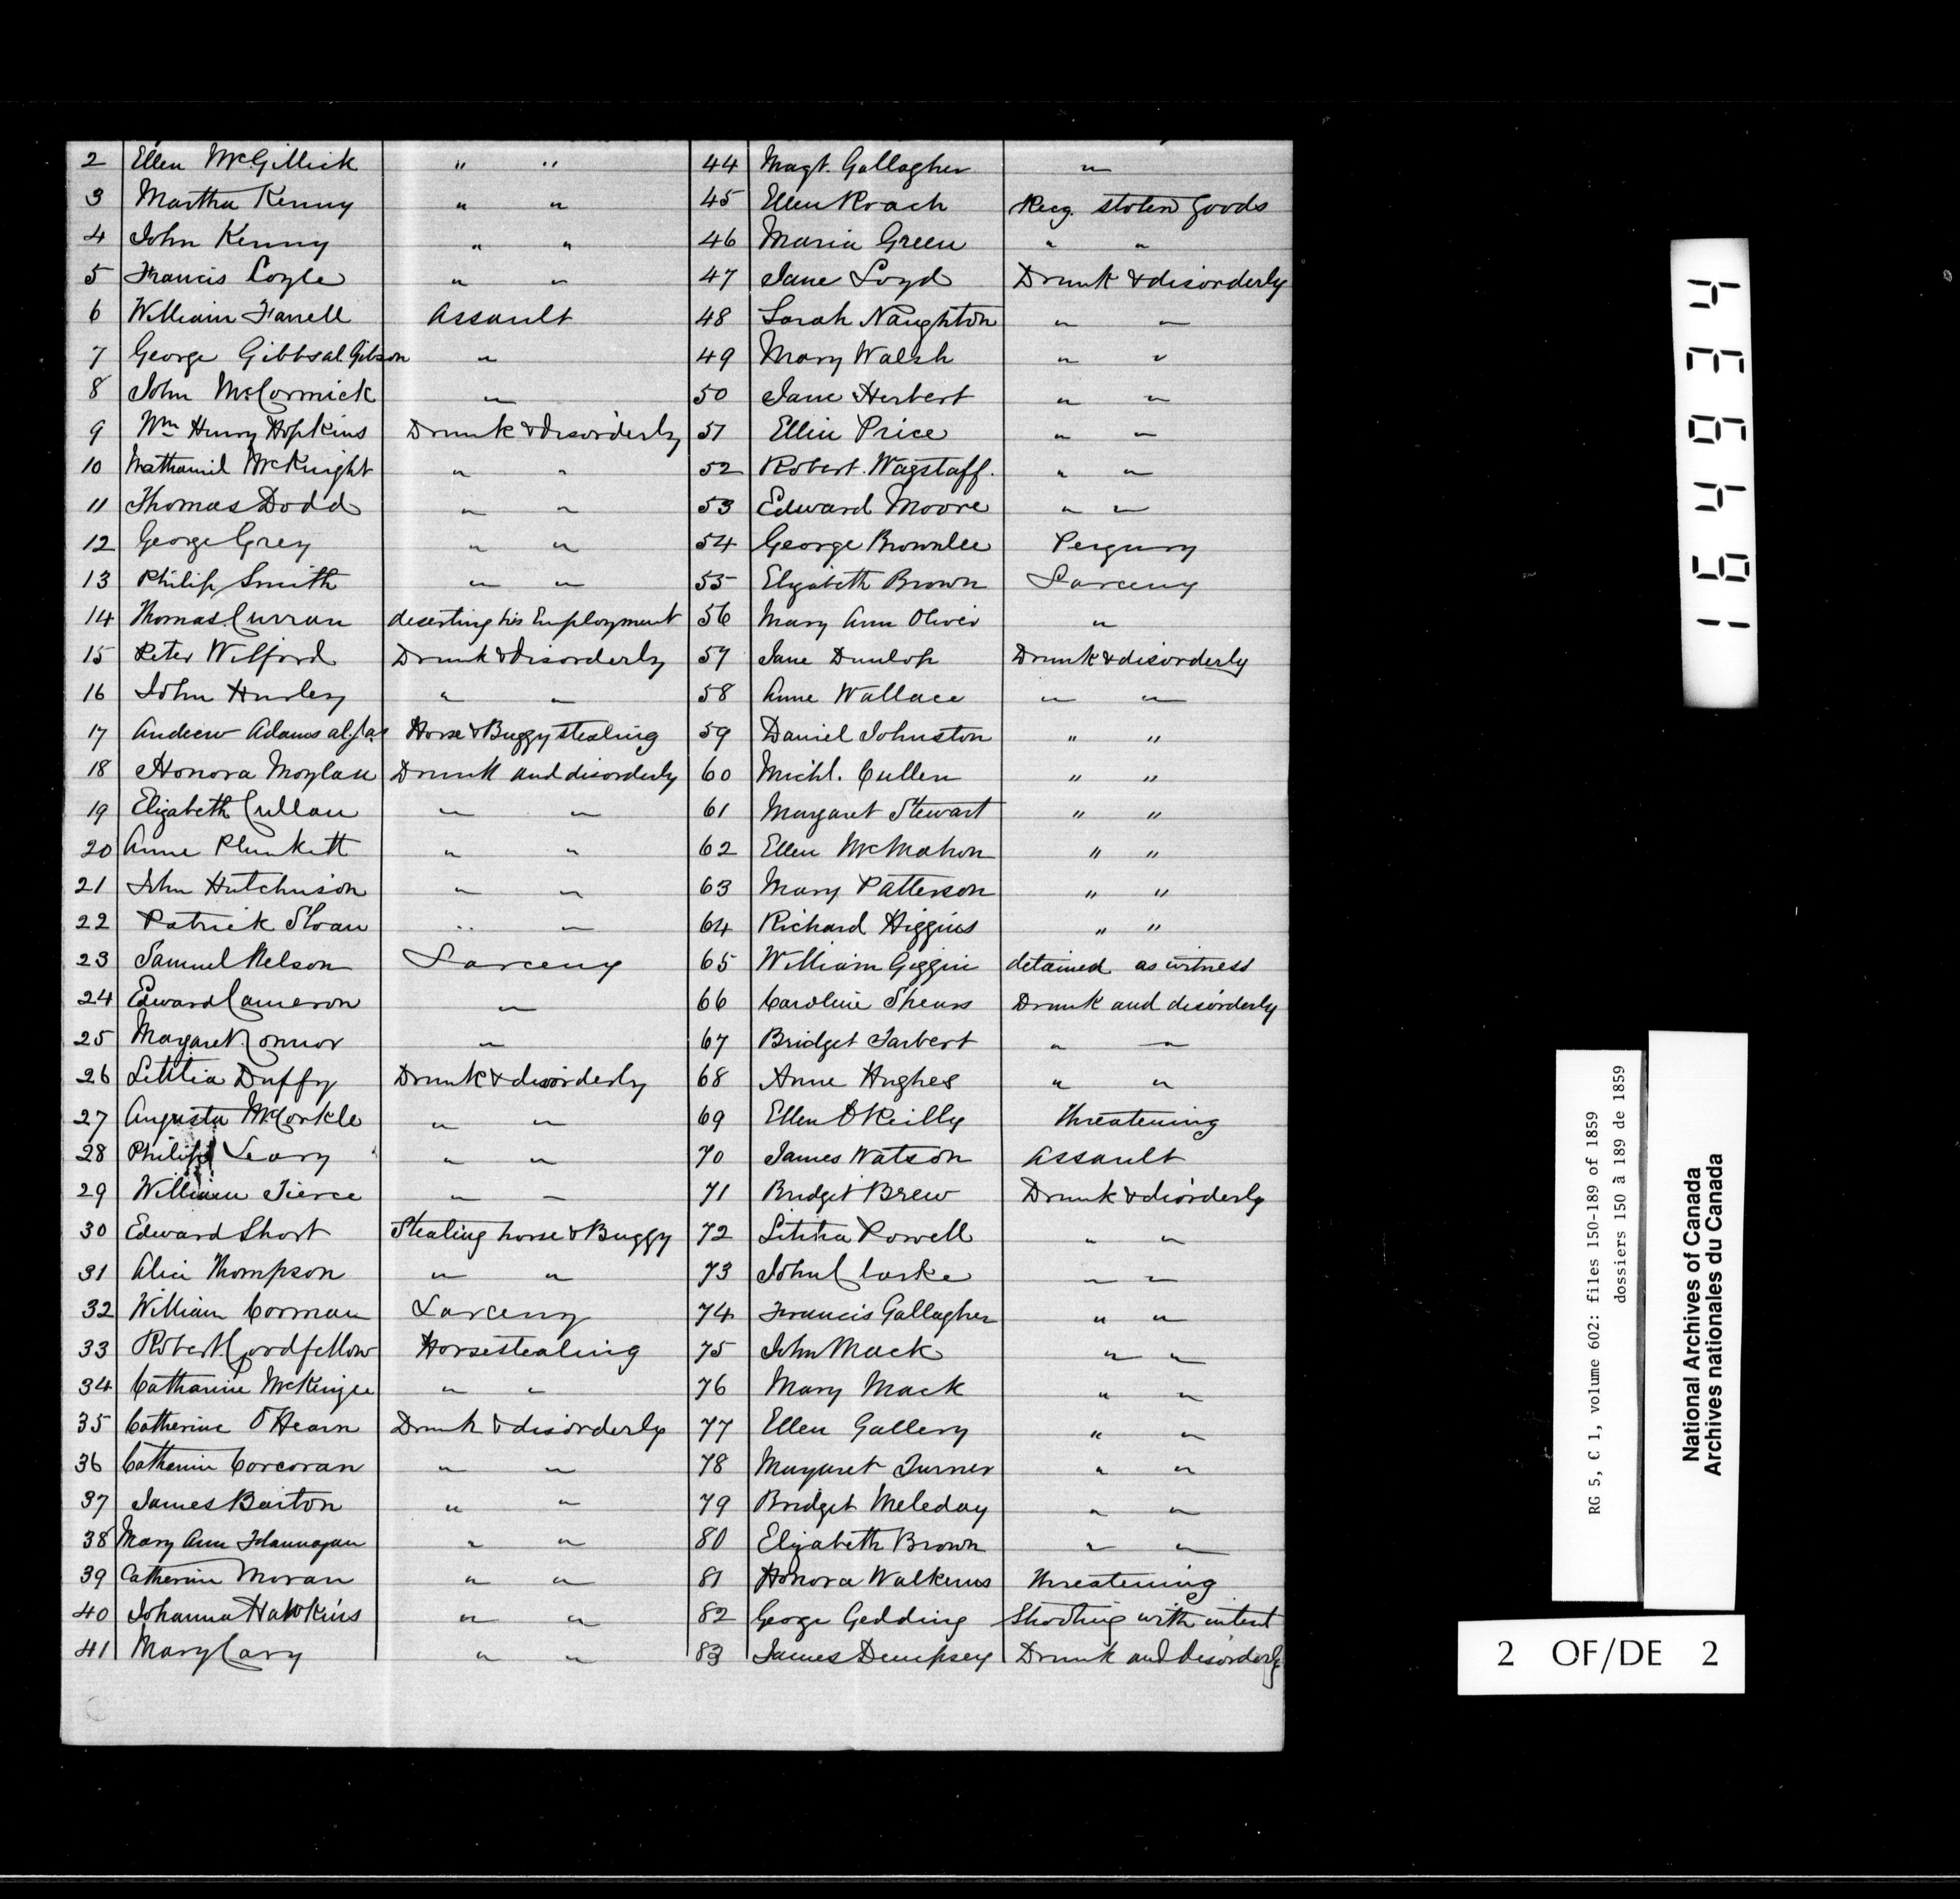 2 Ellen McGillick " "
3 Martha Kenny " "
4 John Kenny " "
5 Francis Coyle " "
6 William Farrell Assault
7 George Gibbs al. Gibson "
8 John McCormick "
9 Wm Henry Hopkins Drunk & disorderly
10 Nathaniel McKnight " "
11 Thomas Dodd " "
12 George Grey " "
13 Philip Smith " "
14 Thomas Curran deserting his Employment
15 Peter Wilford Drunk & disorderly
16 John Hurley " "
17 Andrew Adams al. Jas Horse & Buggy stealing
18 Honora Moylan Drunk and disorderly
19 Elizabeth Cullan " "
20 Anne Plunkett " "
21 John Hutchinson " "
22 Patrick Sloan " "
23 Samuel Nelson Larceny
24 Edward Cameron "
25 Margaret Connor "
26 Letitia Duffy Drunk & disorderly
27 Augusta McCorkle " "
28 Philip Leary " "
29 William Tierce " "
30 Edward Short Stealing horse & Buggy
31 Alice Thompson " "
32 William Corman Larceny
33 Robert Cordfellow Horsestealing
34 Catharine McKenzie " "
35 Catherine O'Hearn Drunk & disorderly
36 Catherine Corcoran " "
37 James Barton " "
38 Mary Ann Flannagan " "
39 Catherine Moran " "
40 Johanna Hawkins " "
41 Mary Cary " "
44 Magt. Gallagher "
45 Ellen Roach Recg. stolen Goods
46 Maria Green " "
47 Jane Loyd Drunk & disorderly
48 Sarah Naughton " "
49 Mary Walsh " "
50 Jane Herbert " "
51 Ellen Price " "
52 Robert Wagstaff. " "
53 Edward Moore " "
54 George Brownlee Pergury
55 Elizabeth Brown Larceny
56 Mary Ann Oliver "
57 Jane Dunlop Drunk & disorderly
58 Anne Wallace " "
59 Daniel Johnston " "
60 Michl. Cullen " "
61 Margaret Stewart " "
62 Ellen McMahon " "
63 Mary Patterson " "
64 Richard Higgins " "
65 William Giggin detained as witness
66 Caroline Spears Drunk and disorderly
67 Bridget Tarbert " "
68 Anne Hughes " "
69 Ellen O'Reilly Threatening
70 James Watson Assault
71 Bridget Brew Drunk & disorderly
72 Letitia Powell " "
73 John Clarke " "
74 Francis Gallagher " "
75 John Mack " "
76 Mary Mack " "
77 Ellen Gallery " "
78 Margaret Turner " "
79 Bridget Meleday " "
80 Elizabeth Brown " "
81 Honora Walkens Threatening
82 George Gedding Shooting with intent
83 James Dempsey Drunk and Disorderly
154934
RG 5, C 1, volume 602: files 150-189 of 1859
dossiers 150 à 189 de 1859
National Archives of Canada
Archives nationales du Canada
2 OF/DE 2